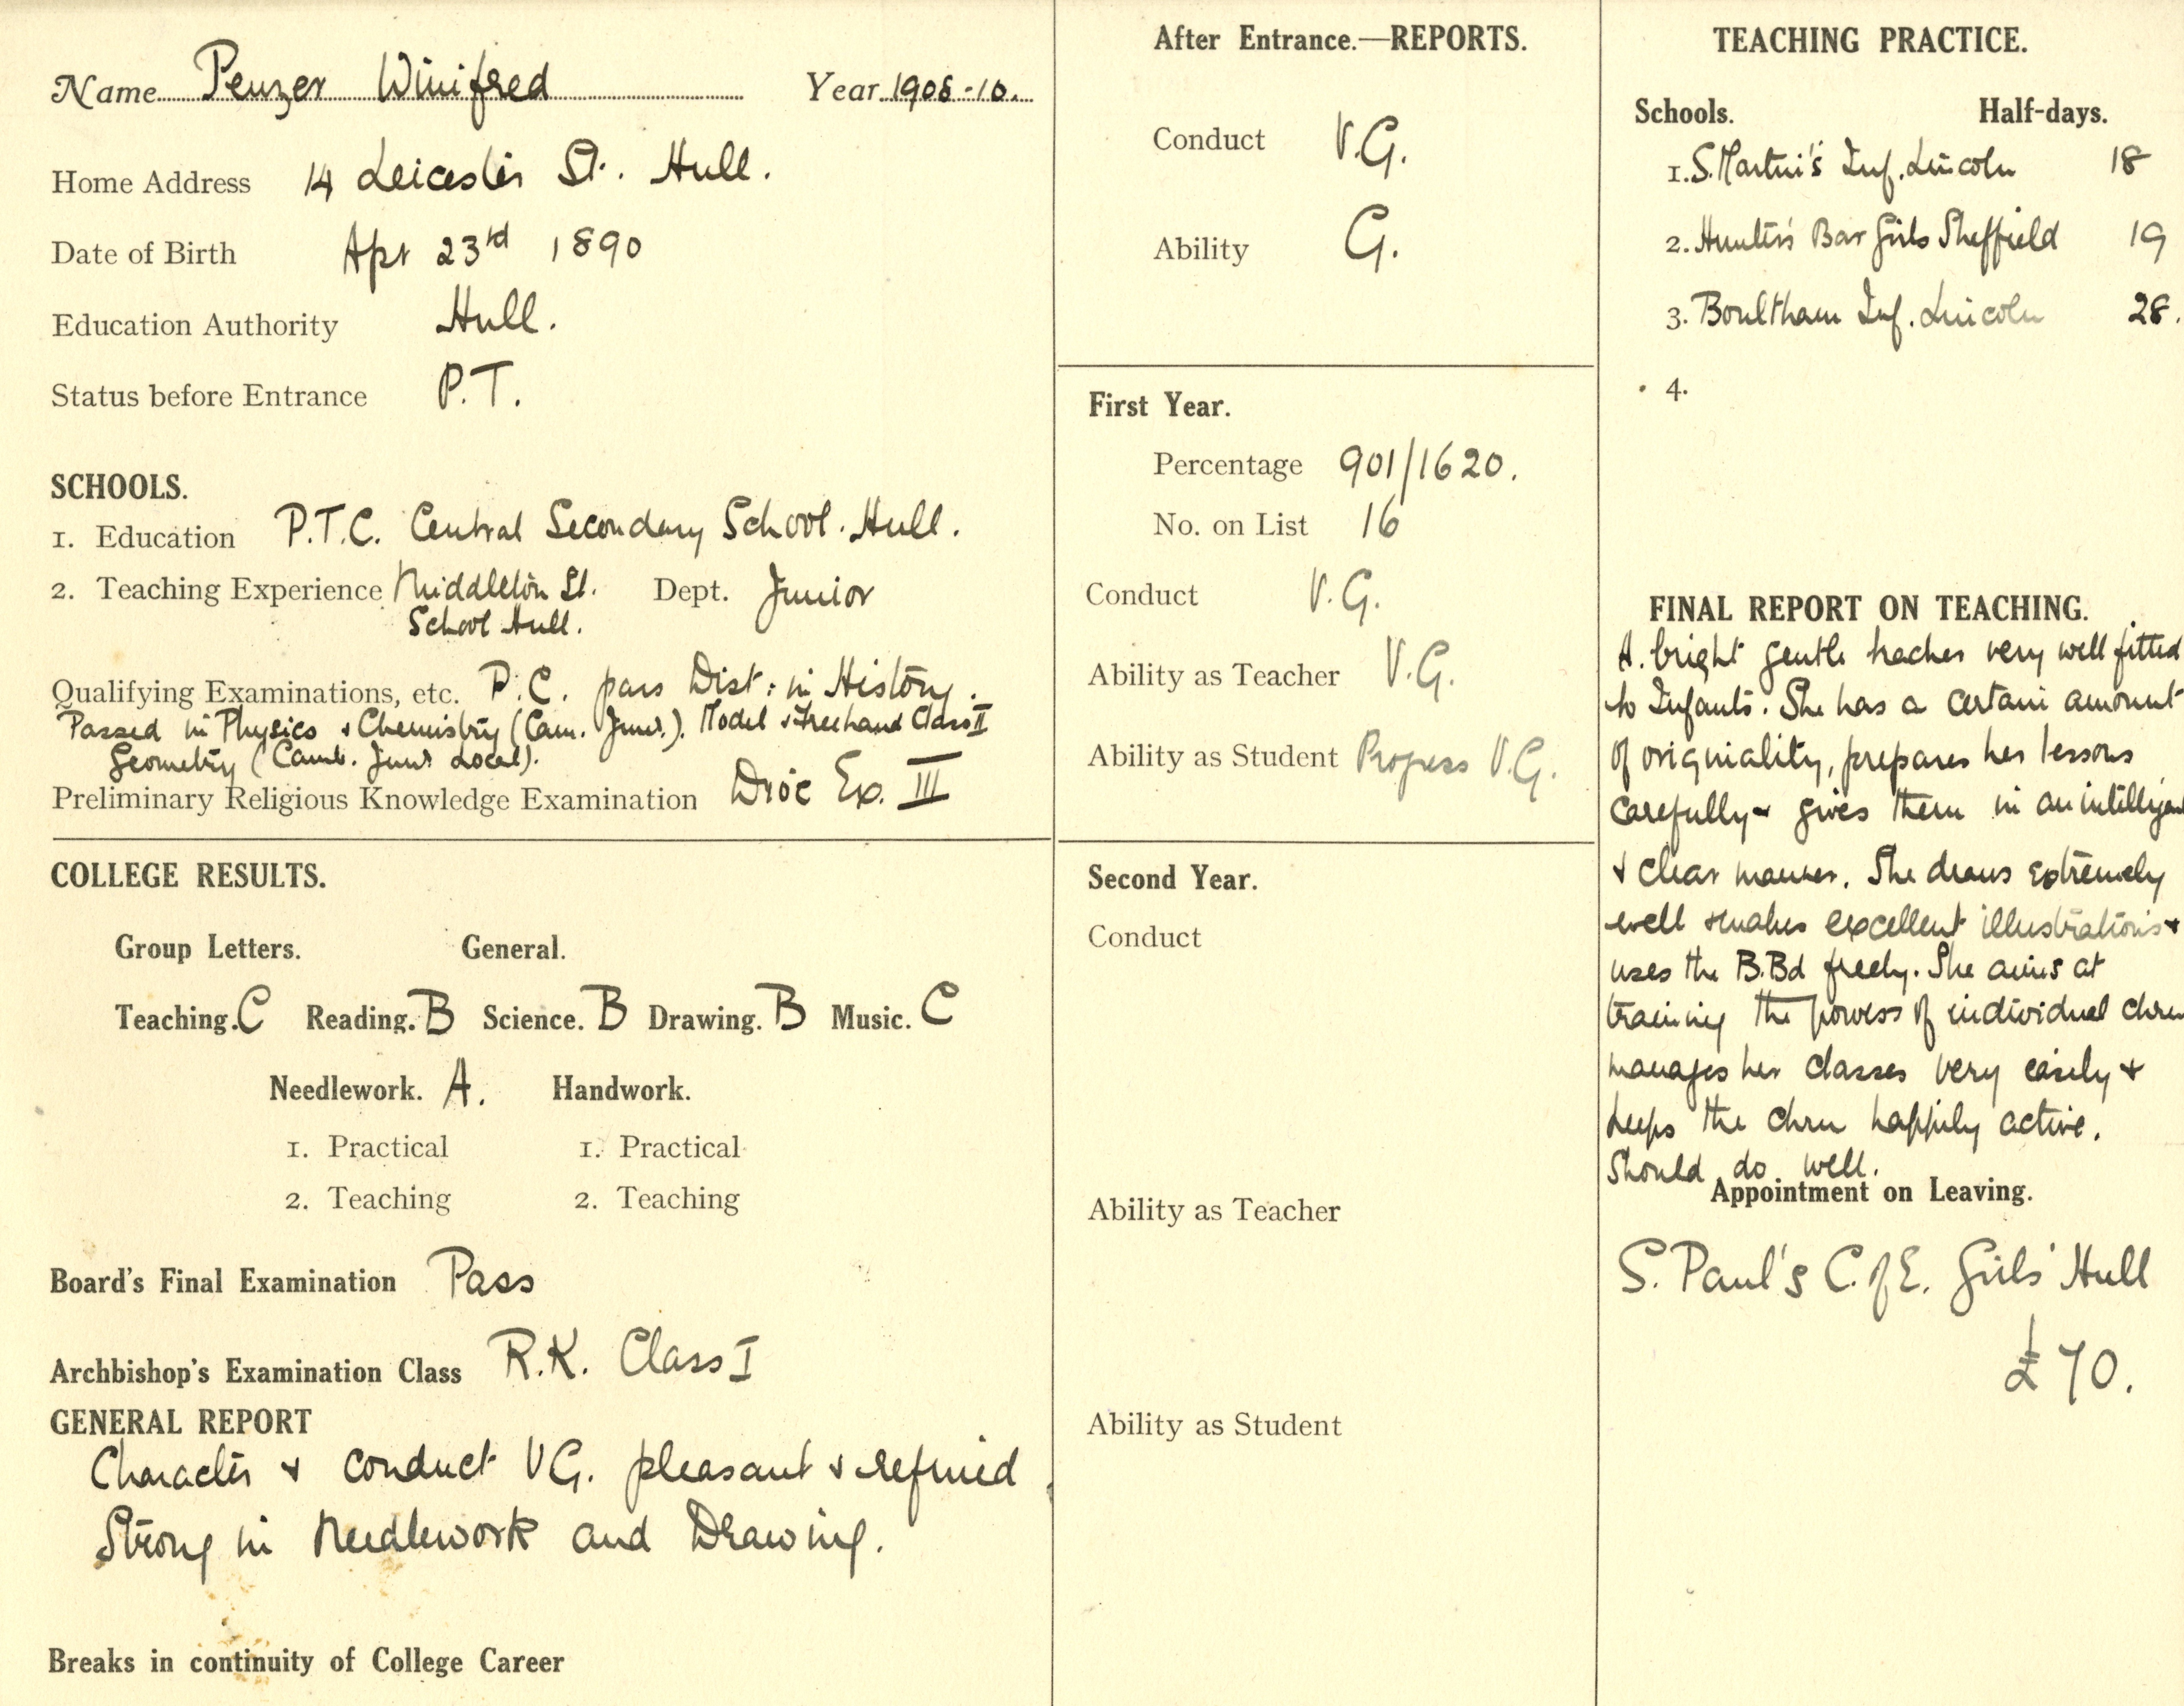 Name Penzer Winifred Year 1908-10.
Home Address 14 Leicester St. Hull.
Date of Birth Apr 23rd 1890
Education Authority Hull.
Status before Entrance P.T.
SCHOOLS.
1. Education P.T.C. Central Secondary School. Hull.
2. Teaching Experience Middleton St. Dept. Junior
School Hull.
Qualifying Examinations, etc. P.C. pass Dist: in History.
Passed in Physics & Chemistry (Cam. Junr.). Model & Freehand Class II
Geometry (Camb. Junr Local).
Preliminary Religious Knowledge Examination Dioc Ex. III
COLLEGE RESULTS.
Group Letters. General.
Teaching. C Reading. B Science. B Drawing. B Music. C
Needlework. A. Handwork.
1. Practical 1. Practical
2. Teaching 2. Teaching
Board's Final Examination Pass
Archbishop's Examination Class R.K. Class I
GENERAL REPORT
Character & conduct V.G. pleasant & refined
Strong in Needlework and Drawing.
Breaks in continuity of College Career
After Entrance.—REPORTS.
Conduct V.G.
Ability G.
First Year.
Percentage 901/1620.
No. on List 16
Conduct V.G.
Ability as Teacher V.G.
Ability as Student Progress V.G.
Second Year.
Conduct
Ability as Teacher
Ability as Student
TEACHING PRACTICE.
Schools. Half-days.
1. S. Martin's Inf. Lincoln 18
2. Hunter's Bar Girls Sheffield 19
3. Boultham Inf. Lincoln 28.
4.
FINAL REPORT ON TEACHING.
A. bright gentle teacher very well fitted
to Infants. She has a certain amount
of originality, prepares her lessons
carefully & gives them in an intelligent
& clear manner. She draws extremely
well & makes excellent illustrations &
uses the B.Bd freely. She aims at
training the powers of individual chren
manages her classes very easily &
keeps the chren happily active.
Should do well.
Appointment on Leaving.
S. Paul's C. of E. Girls' Hull
£70.